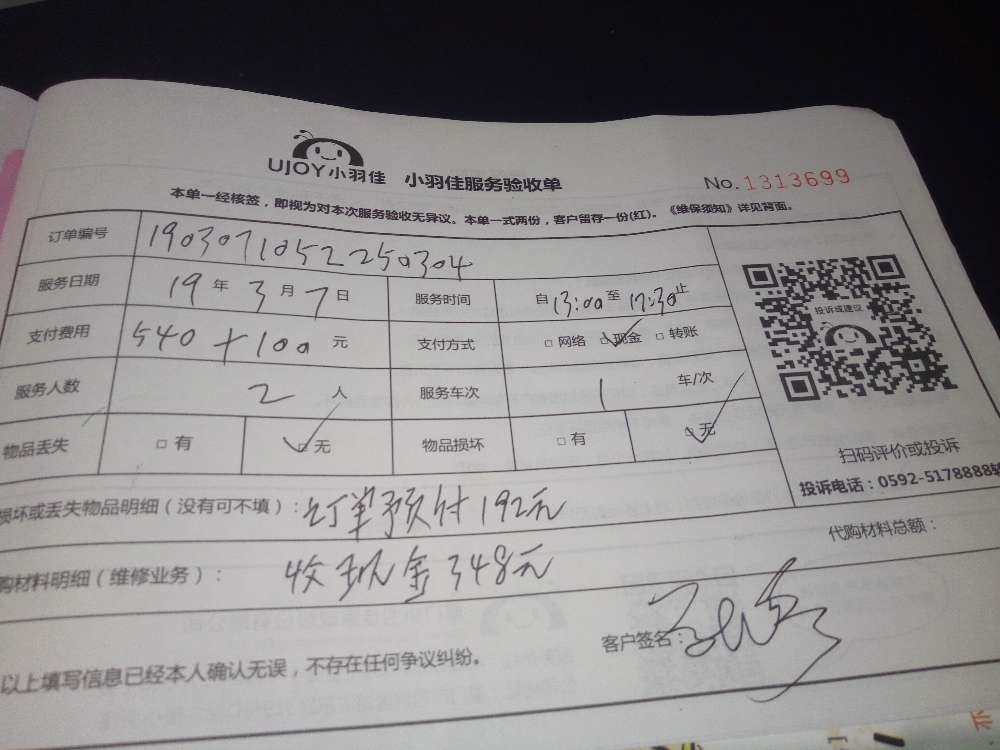 UJOY小羽佳 小羽佳服务验收单 No.1313699
本单一经核签，即视为对本次服务验收无异议。本单一式两份，客户留存一份(红)。《维保须知》详见背面。
订单编号 1903071052250304
服务日期 19年3月7日 服务时间 自13:00至17:30止
支付费用 540+100元 支付方式 □网络 ☑现金 □转账
服务人数 2人 服务车次 1 车/次
物品丢失 □有 ☑无 物品损坏 □有 ☑无
投诉或建议
扫码评价或投诉
投诉电话：0592-5178888转
损坏或丢失物品明细（没有可不填）：订单预付192元
购材料明细（维修业务）：收现金348元 代购材料总额：
客户签名：
以上填写信息已经本人确认无误，不存在任何争议纠纷。